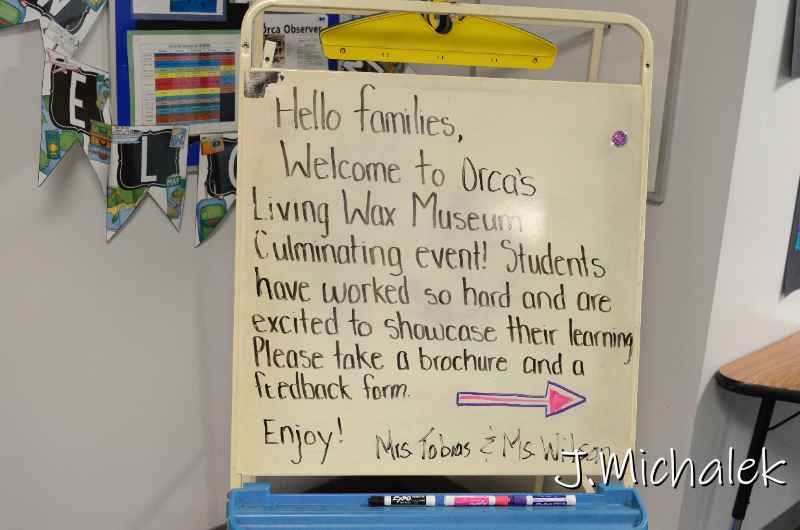 E
L
C
Orca Observer
Hello families,
Welcome to Orca's
Living Wax Museum
Culminating event! Students
have worked so hard and are
excited to showcase their learning
Please take a brochure and a
feedback form.
Enjoy! Mrs. Tobias & Ms. Wilson
J.Michalek
EXPO